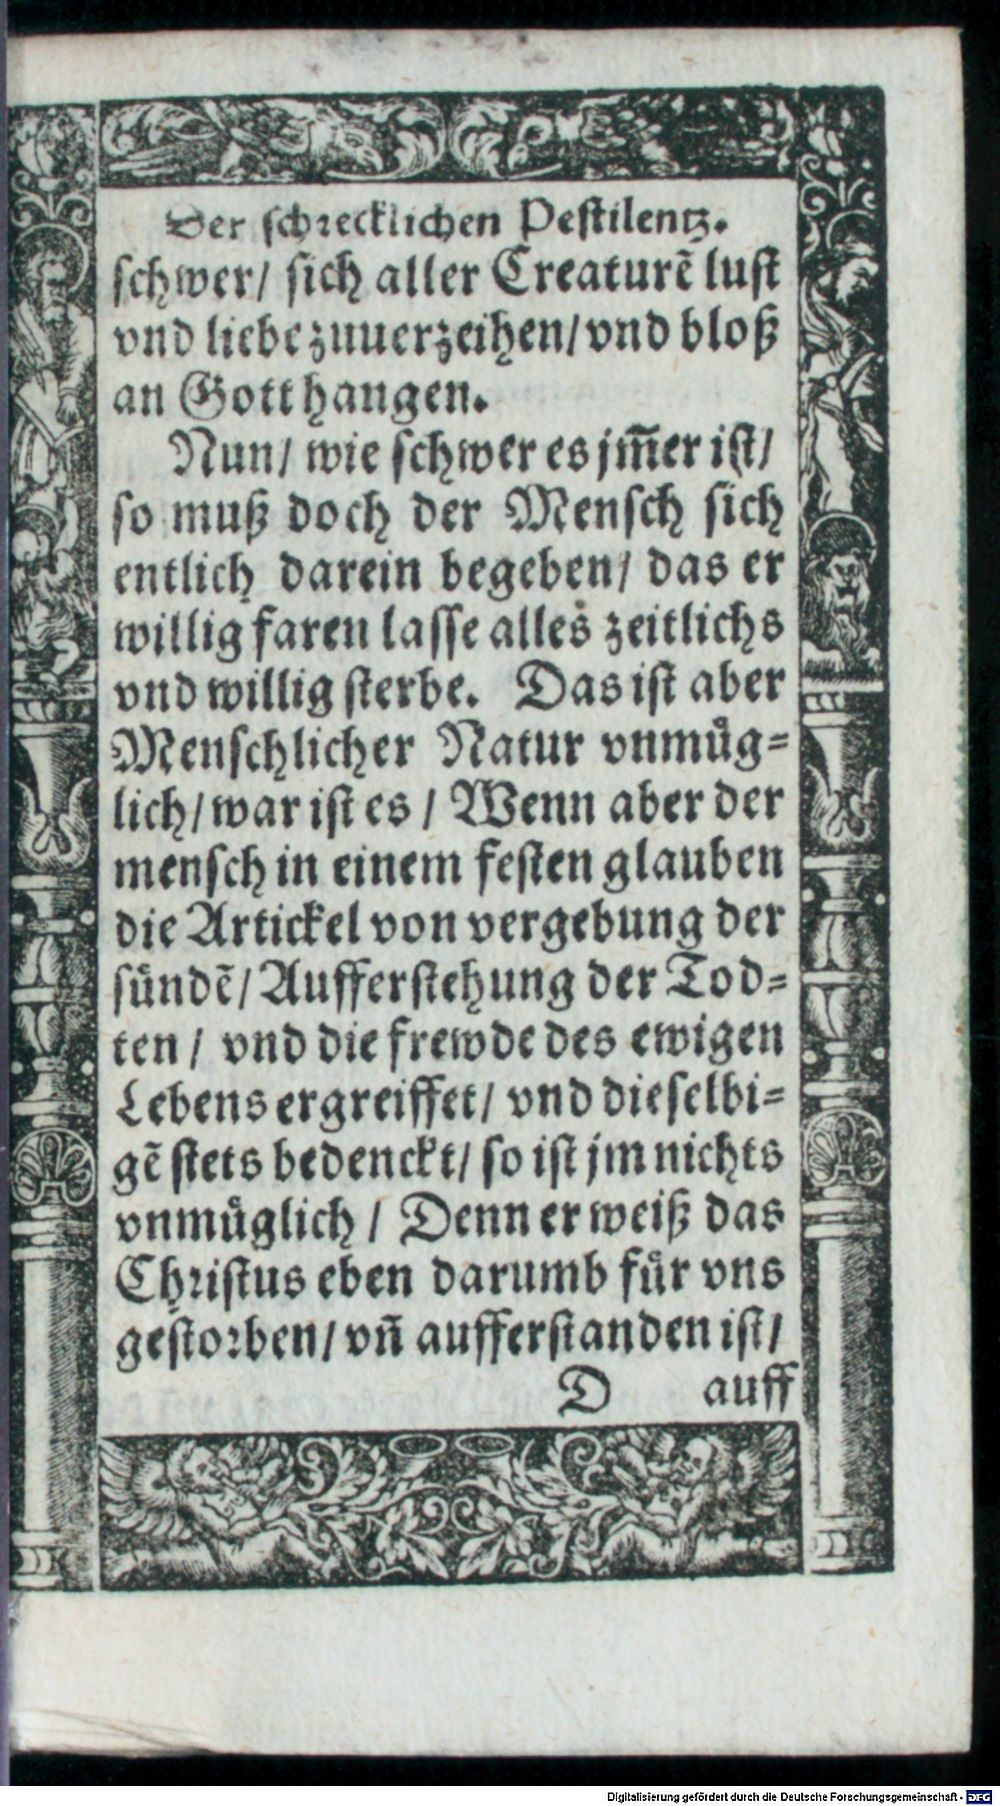 Der schrecklichen Pestilentz.
schwer/ sich aller Creaturẽ lust
vnd liebe zuuerzeihen/ vnd bloß
an Gott hangen.
Nun/ wie schwer es jm̃er ist/
so muß doch der Mensch sich
entlich darein begeben/ das er
willig faren lasse alles zeitlichs
vnd willig sterbe. Das ist aber
Menschlicher Natur vnmuͤg=
lich/ war ist es / Wenn aber der
mensch in einem festen glauben
die Artickel von vergebung der
suͤndẽ/ Aufferstehung der Tod=
ten / vnd die frewde des ewigen
Lebens ergreiffet/ vnd dieselbi=
gẽ stets bedenckt/ so ist jm nichts
vnmuͤglich / Denn er weiß das
Christus eben darumb fuͤr vns
gestorben/ vñ aufferstanden ist/
D auff
Digitalisierung gefördert durch die Deutsche Forschungsgemeinschaft - DFG